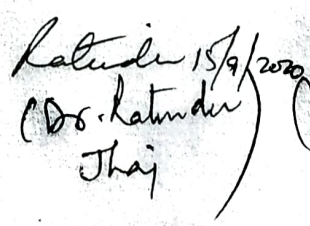 Ratinder 15/9/2020
(Dr. Ratinder
Jhaj)